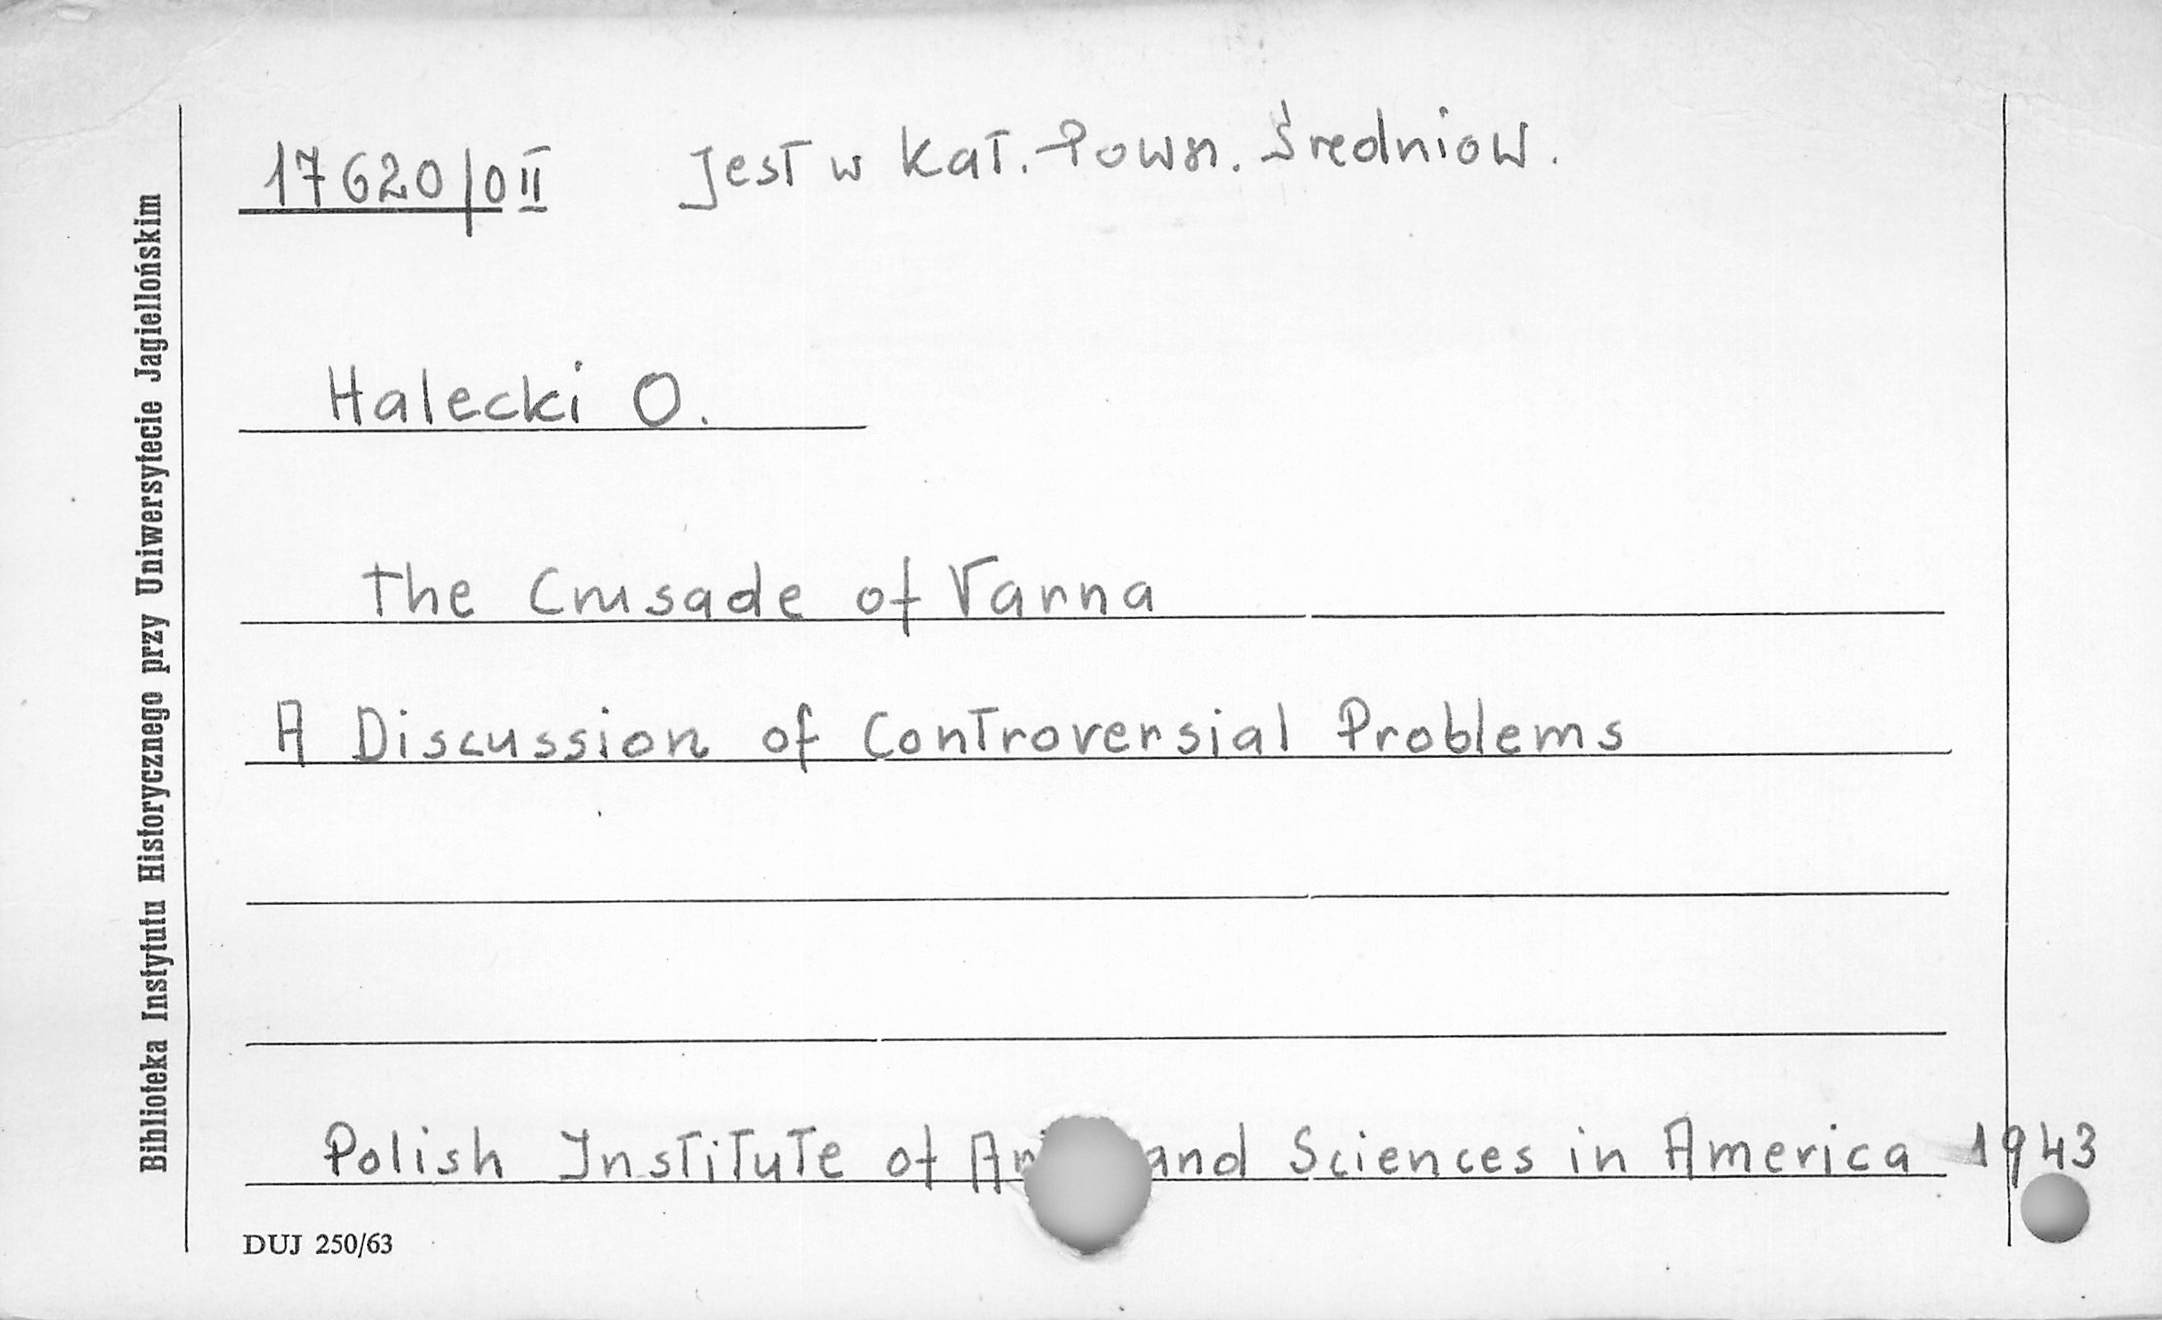 17620/0 II Jest w kat. Pows. Średniow.
Halecki O.
The Crusade of Varna
A Discussion of Controversial Problems
Polish Institute of and Sciences in America 1943
DUJ 250/63
Biblioteka Instytutu Historycznego przy Uniwersytecie Jagiellońskim